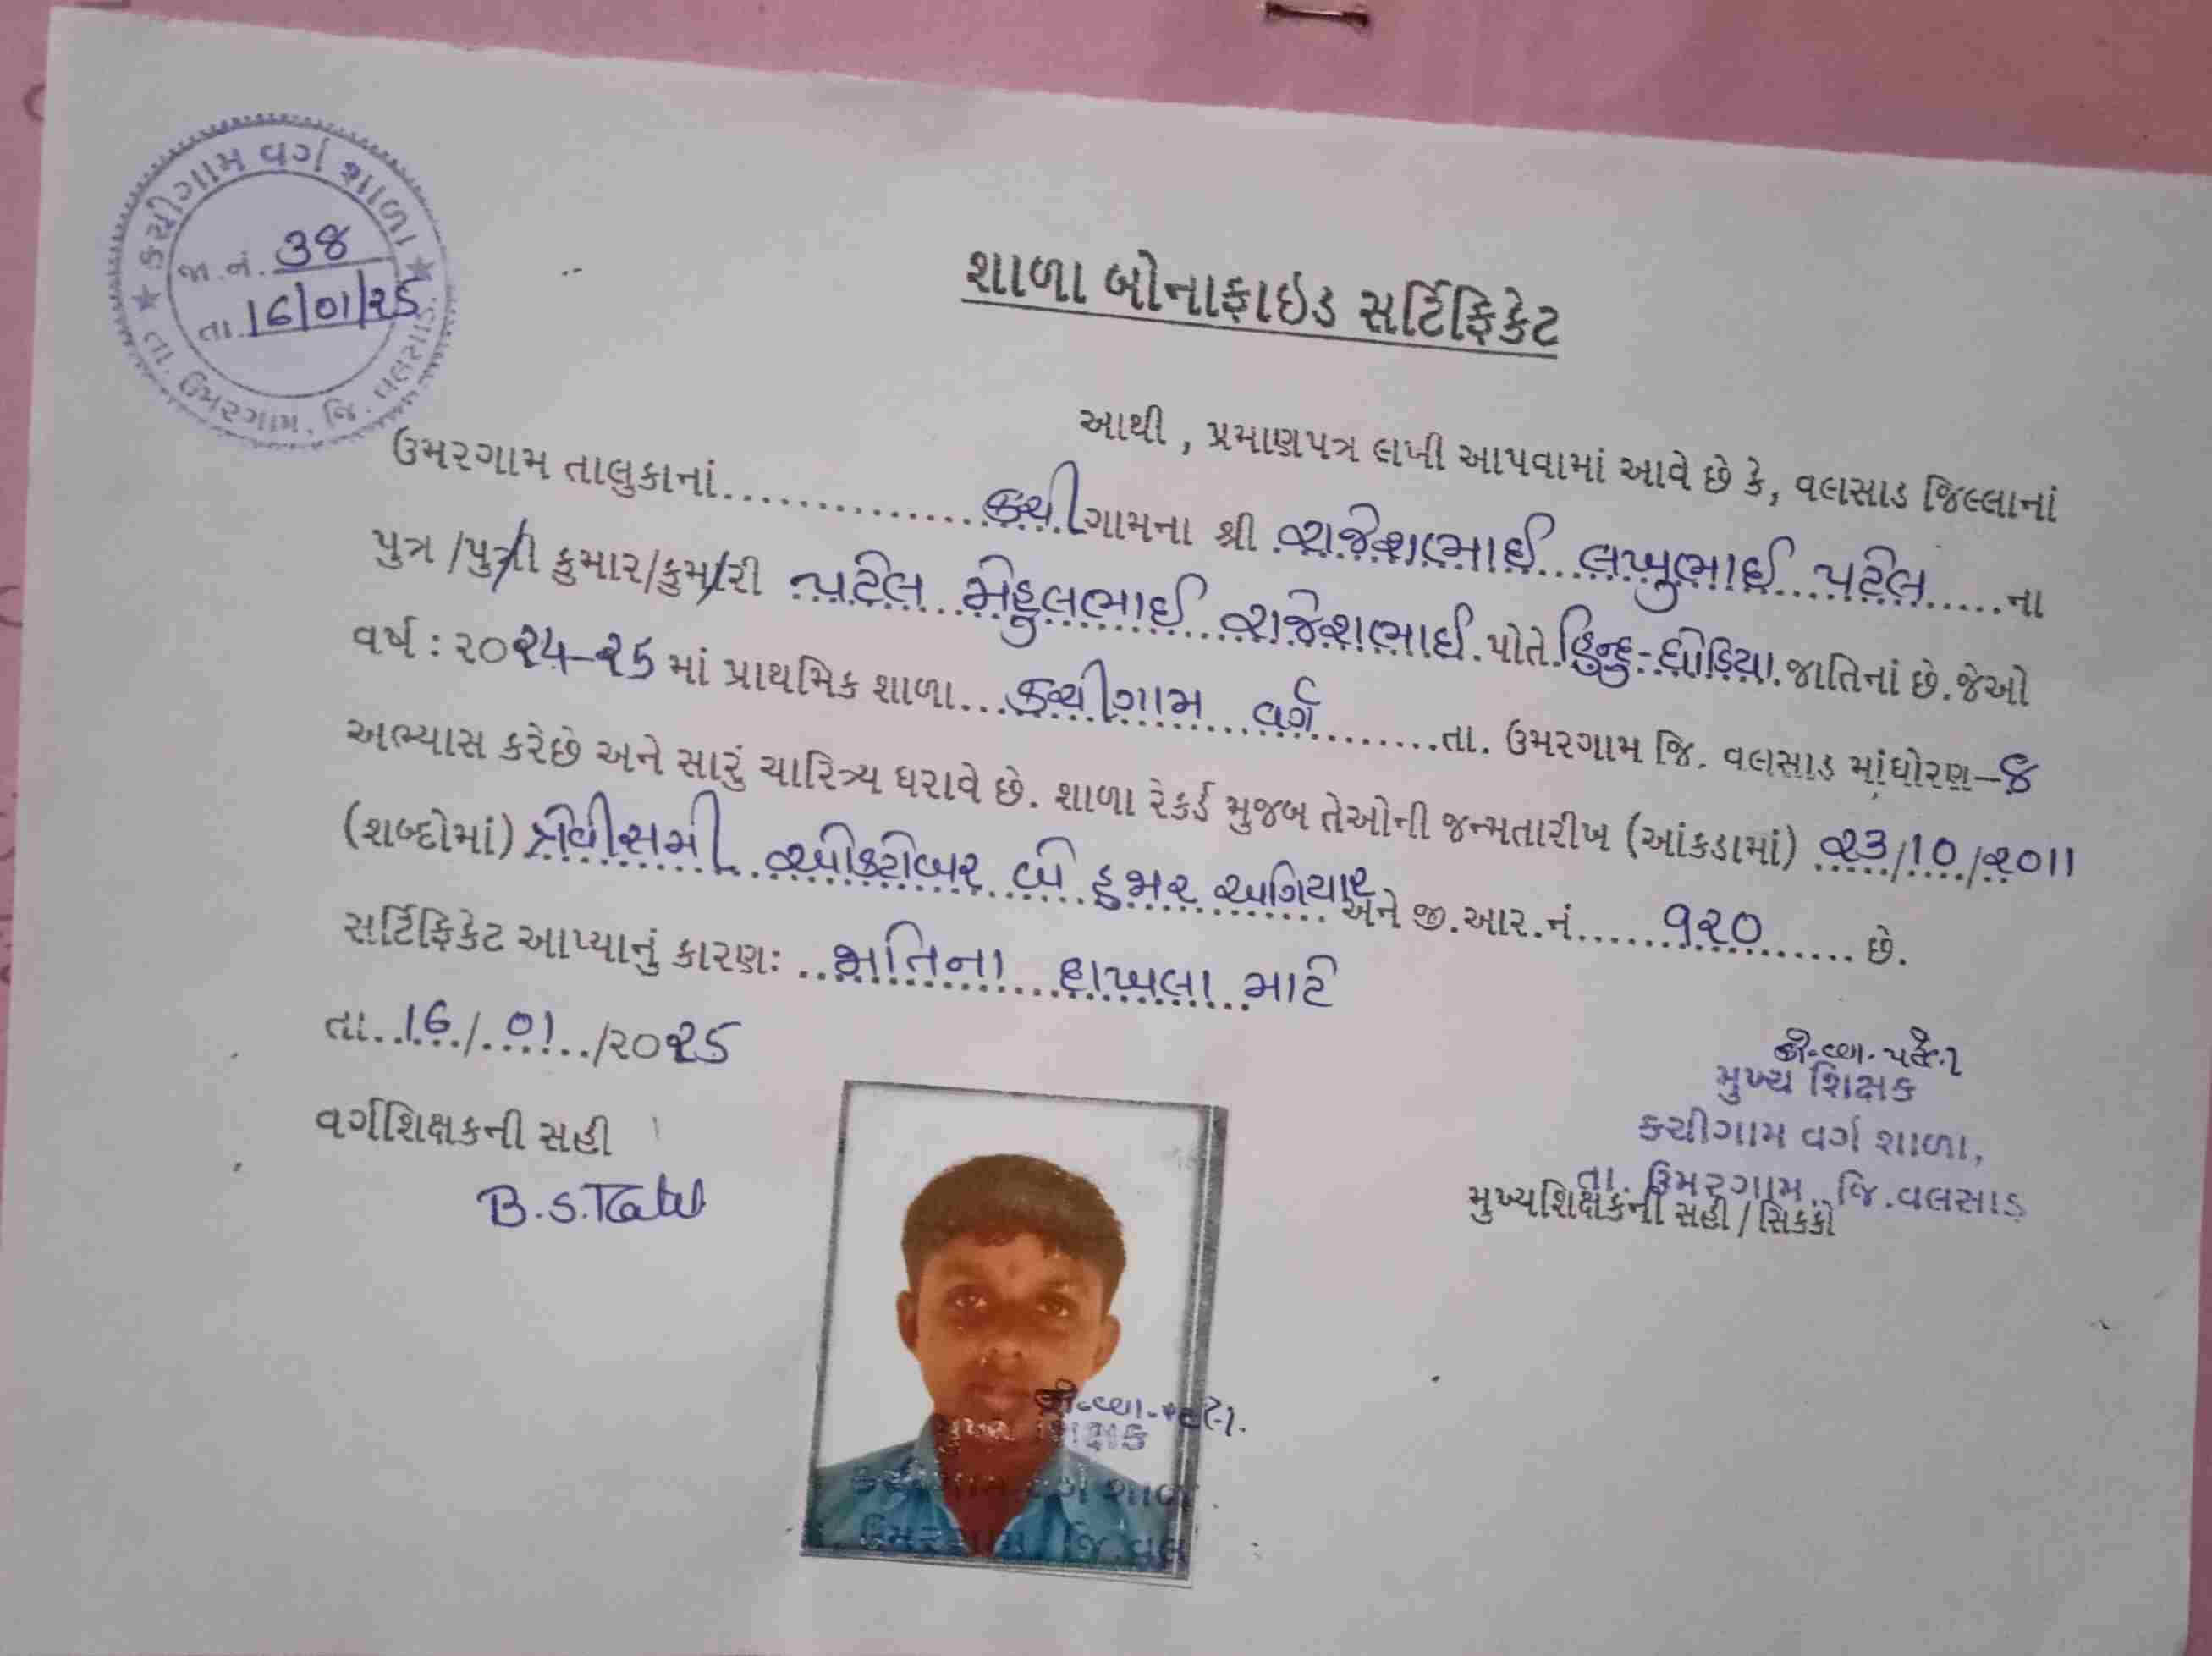 ★ કચીગામ વર્ગ શાળા ★
જા.નં. 38
તા. 16/01/૨5
તા. ઉમરગામ, જિ. વલસાડ.
શાળા બોનાફાઇડ સર્ટિફિકેટ
આથી , પ્રમાણપત્ર લખી આપવામાં આવે છે કે, વલસાડ જિલ્લાનાં
ઉમરગામ તાલુકાનાં................કચીગામના શ્રી રાજેશભાઈ લખુભાઈ પટેલ.....ના
પુત્ર /પુત્રી કુમાર/કુમારી પટેલ મેહુલભાઈ રાજેશભાઈ પોતે હિન્દુ-ધોડિયા જાતિનાં છે.જેઓ
વર્ષ : ૨૦૨૪-૨5 માં પ્રાથમિક શાળા...કચીગામ વર્ગ........તા. ઉમરગામ જિ. વલસાડ માંધોરણ-8
અભ્યાસ કરેછે અને સારું ચારિત્ર્ય ધરાવે છે. શાળા રેકર્ડ મુજબ તેઓની જન્મતારીખ (આંકડામાં) ૨૩/10/૨011
(શબ્દોમાં) ત્રેવીસમી ઓક્ટોબર બે હજાર અગિયાર અને જી.આર.નં.....૧૨૦...... છે.
સર્ટિફિકેટ આપ્યાનું કારણઃ ..જાતિના દાખલા માટે
તા..16/.01../૨૦૨5
વર્ગશિક્ષકની સહી
B.S.Patel
મુખ્ય શિક્ષક
કચીગામ વર્ગ શાળા,
તા. ઉમરગામ, જિ.વલસાડ
મુખ્યશિક્ષકની સહી / સિકકો
મુખ્ય શિક્ષક
કચીગામ વર્ગ શાળા
ઉમરગામ, જિ.વલ